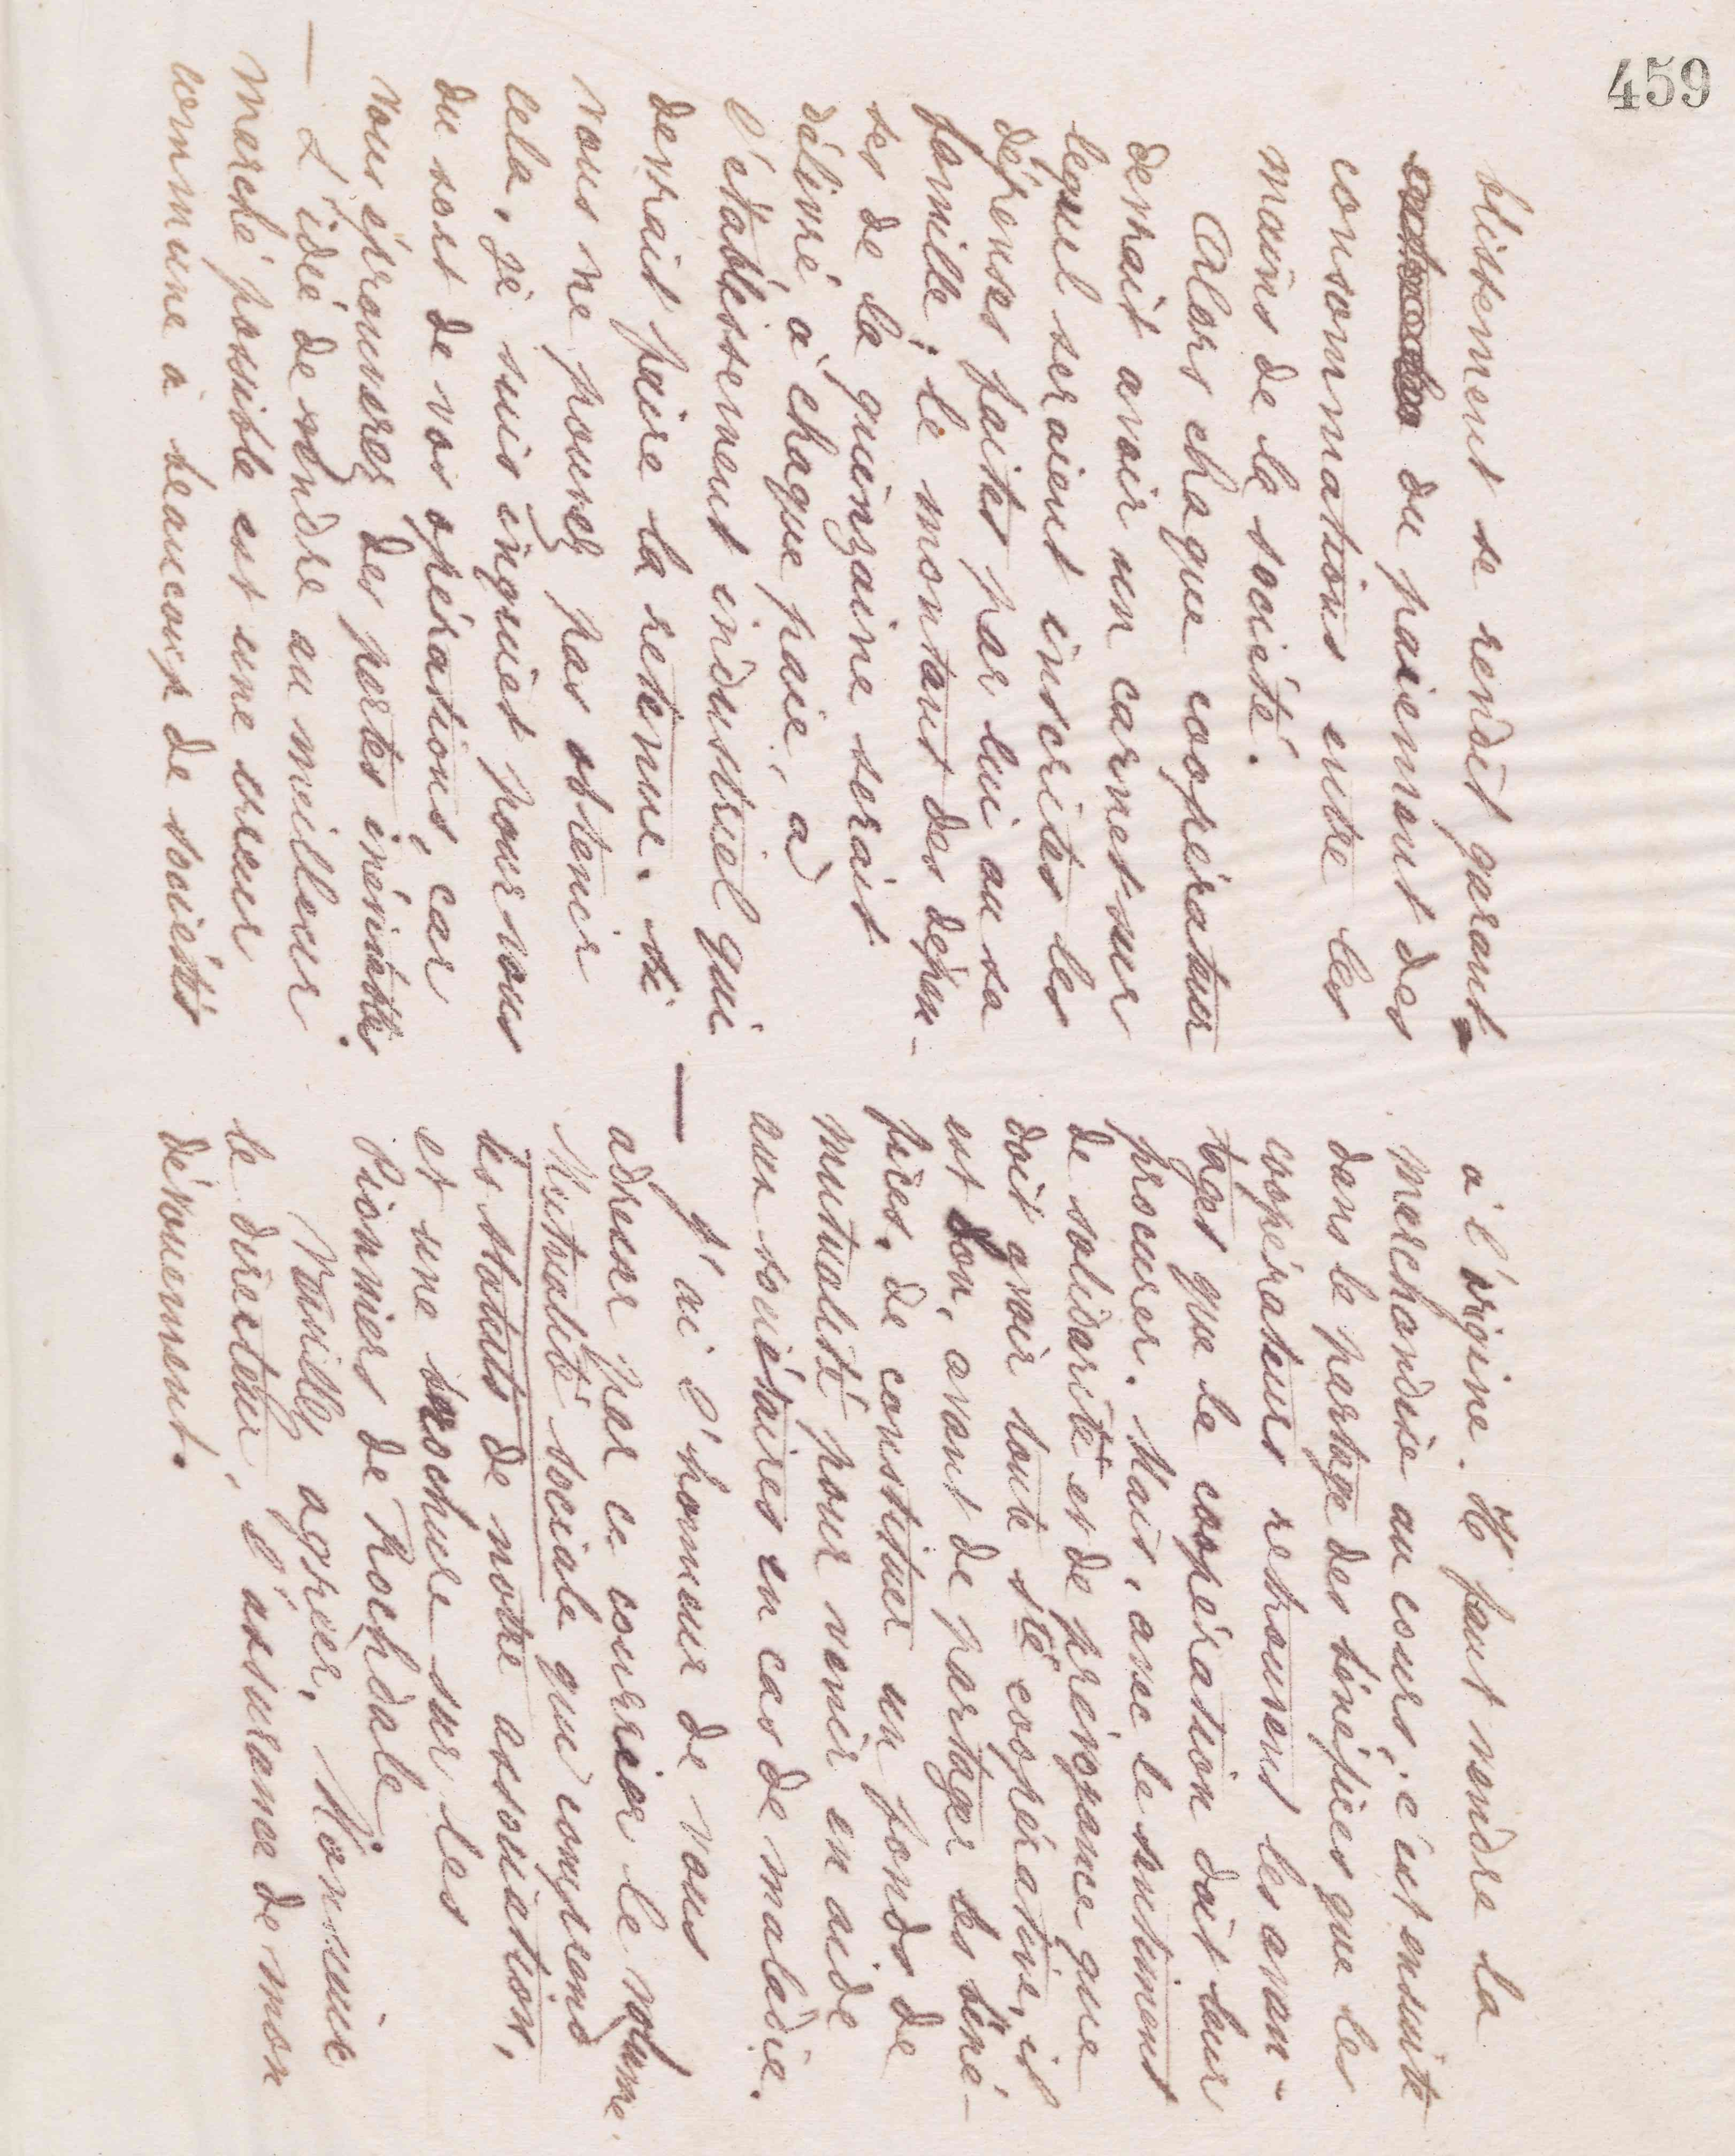 459
blissement se rendît garant
du paiement des
consommations entre les
mains de la société.
Alors chaque coopérateur
devrait avoir un carnet sur
lequel seraient inscrites les
dépenses faites par lui ou sa
famille ; le montant des dépen-
ses de la quinzaine serait
délivré à chaque paie, à
l'établissement industriel qui
devrait faire la retenue. Si
vous ne pouvez pas obtenir
cela, je suis inquiet pour vous
du sort de vos opérations, car
vous éprouverez des pertes inévitables.
— L'idée de vendre au meilleur
marché possible est une erreur
commune à beaucoup de sociétés
à l'origine. Il faut vendre la
marchandise au cours, c'est ensuite
dans le partage des bénéfices que les
coopérateurs retrouvent les avan-
tages que la coopération doit leur
procurer. Mais, avec le sentiment
de solidarité et de prévoyance que
doit avoir toute Sté coopérative, il
est bon, avant de partager les béné-
fices, de constituer un fonds de
mutualité pour venir en aide
aux sociétaires en cas de maladie.
— J'ai l'honneur de vous
adresser par ce courrier le volume
Mutualité sociale qui comprend
les statuts de notre association,
et une brochure sur les
Pionniers de Rochdale.
Veuillez agréer, Monsieur
le directeur, l'assurance de mon
dévouement.